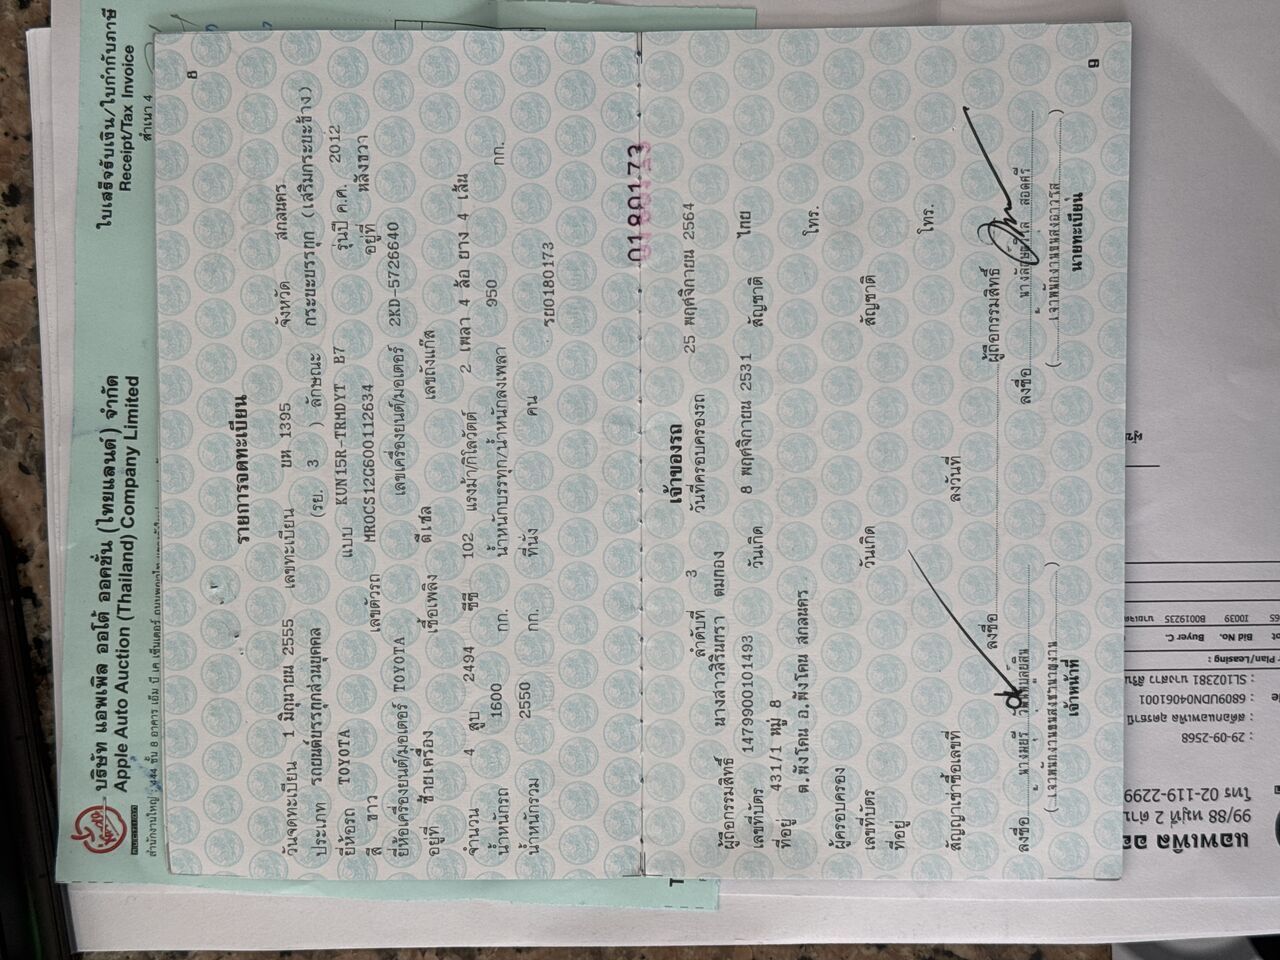 บริษัท แอพเพิล ออโต้ ออคชั่น (ไทยแลนด์) จำกัด
Apple Auto Auction (Thailand) Company Limited
ใบเสร็จรับเงิน/ใบกำกับภาษี
Receipt/Tax Invoice
สำเนา 4
8
รายการจดทะเบียน
วันจดทะเบียน 1 มิถุนายน 2555 เลขทะเบียน บห 1395 จังหวัด สกลนคร
ประเภท รถยนต์บรรทุกส่วนบุคคล (รย. 3 ) ลักษณะ กระบะบรรทุก (เสริมกระบะข้าง)
ยี่ห้อรถ TOYOTA แบบ KUN15R-TRMDYT B7 รุ่นปี ค.ศ. 2012
สี ขาว เลขตัวรถ MR0CS12G600112634 อยู่ที่ หลังขวา
ยี่ห้อเครื่องยนต์/มอเตอร์ TOYOTA เลขเครื่องยนต์/มอเตอร์ 2KD-5726640
อยู่ที่ ซ้ายเครื่อง เชื้อเพลิง ดีเซล เลขถังแก๊ส
จำนวน 4 สูบ 2494 ซีซี 102 แรงม้า/กิโลวัตต์ 2 เพลา 4 ล้อ ยาง 4 เส้น
น้ำหนักรถ 1600 กก. น้ำหนักบรรทุก/น้ำหนักลงเพลา 950 กก.
น้ำหนักรวม 2550 กก. ที่นั่ง คน
รย0180173
0180173
เจ้าของรถ
ลำดับที่ 3 วันที่ครอบครองรถ 25 พฤศจิกายน 2564
ผู้ถือกรรมสิทธิ์ นางสาวสิรินทรา ตมกอง
เลขที่บัตร 1479900101493 วันเกิด 8 พฤศจิกายน 2531 สัญชาติ ไทย
ที่อยู่ 431/1 หมู่ 8
ต.พังโคน อ.พังโคน สกลนคร โทร.
ผู้ครอบครอง
เลขที่บัตร วันเกิด สัญชาติ
ที่อยู่
โทร.
สัญญาเช่าซื้อเลขที่ ลงวันที่
ลงชื่อ ผู้ถือกรรมสิทธิ์
ลงชื่อ นางมยุรี ลงชื่อ
(เจ้าพนักงานขนส่งชำนาญงาน) (เจ้าพนักงานขนส่งอาวุโส)
เจ้าหน้าที่ นายทะเบียน
9
99/88 หมู่ที่ 2
โทร 02-119-2299
: 29-09-2568
: 6809UDN04061001
: SL102381
Plan/Leasing :
Bid No. Buyer C.
I0039 B0019235